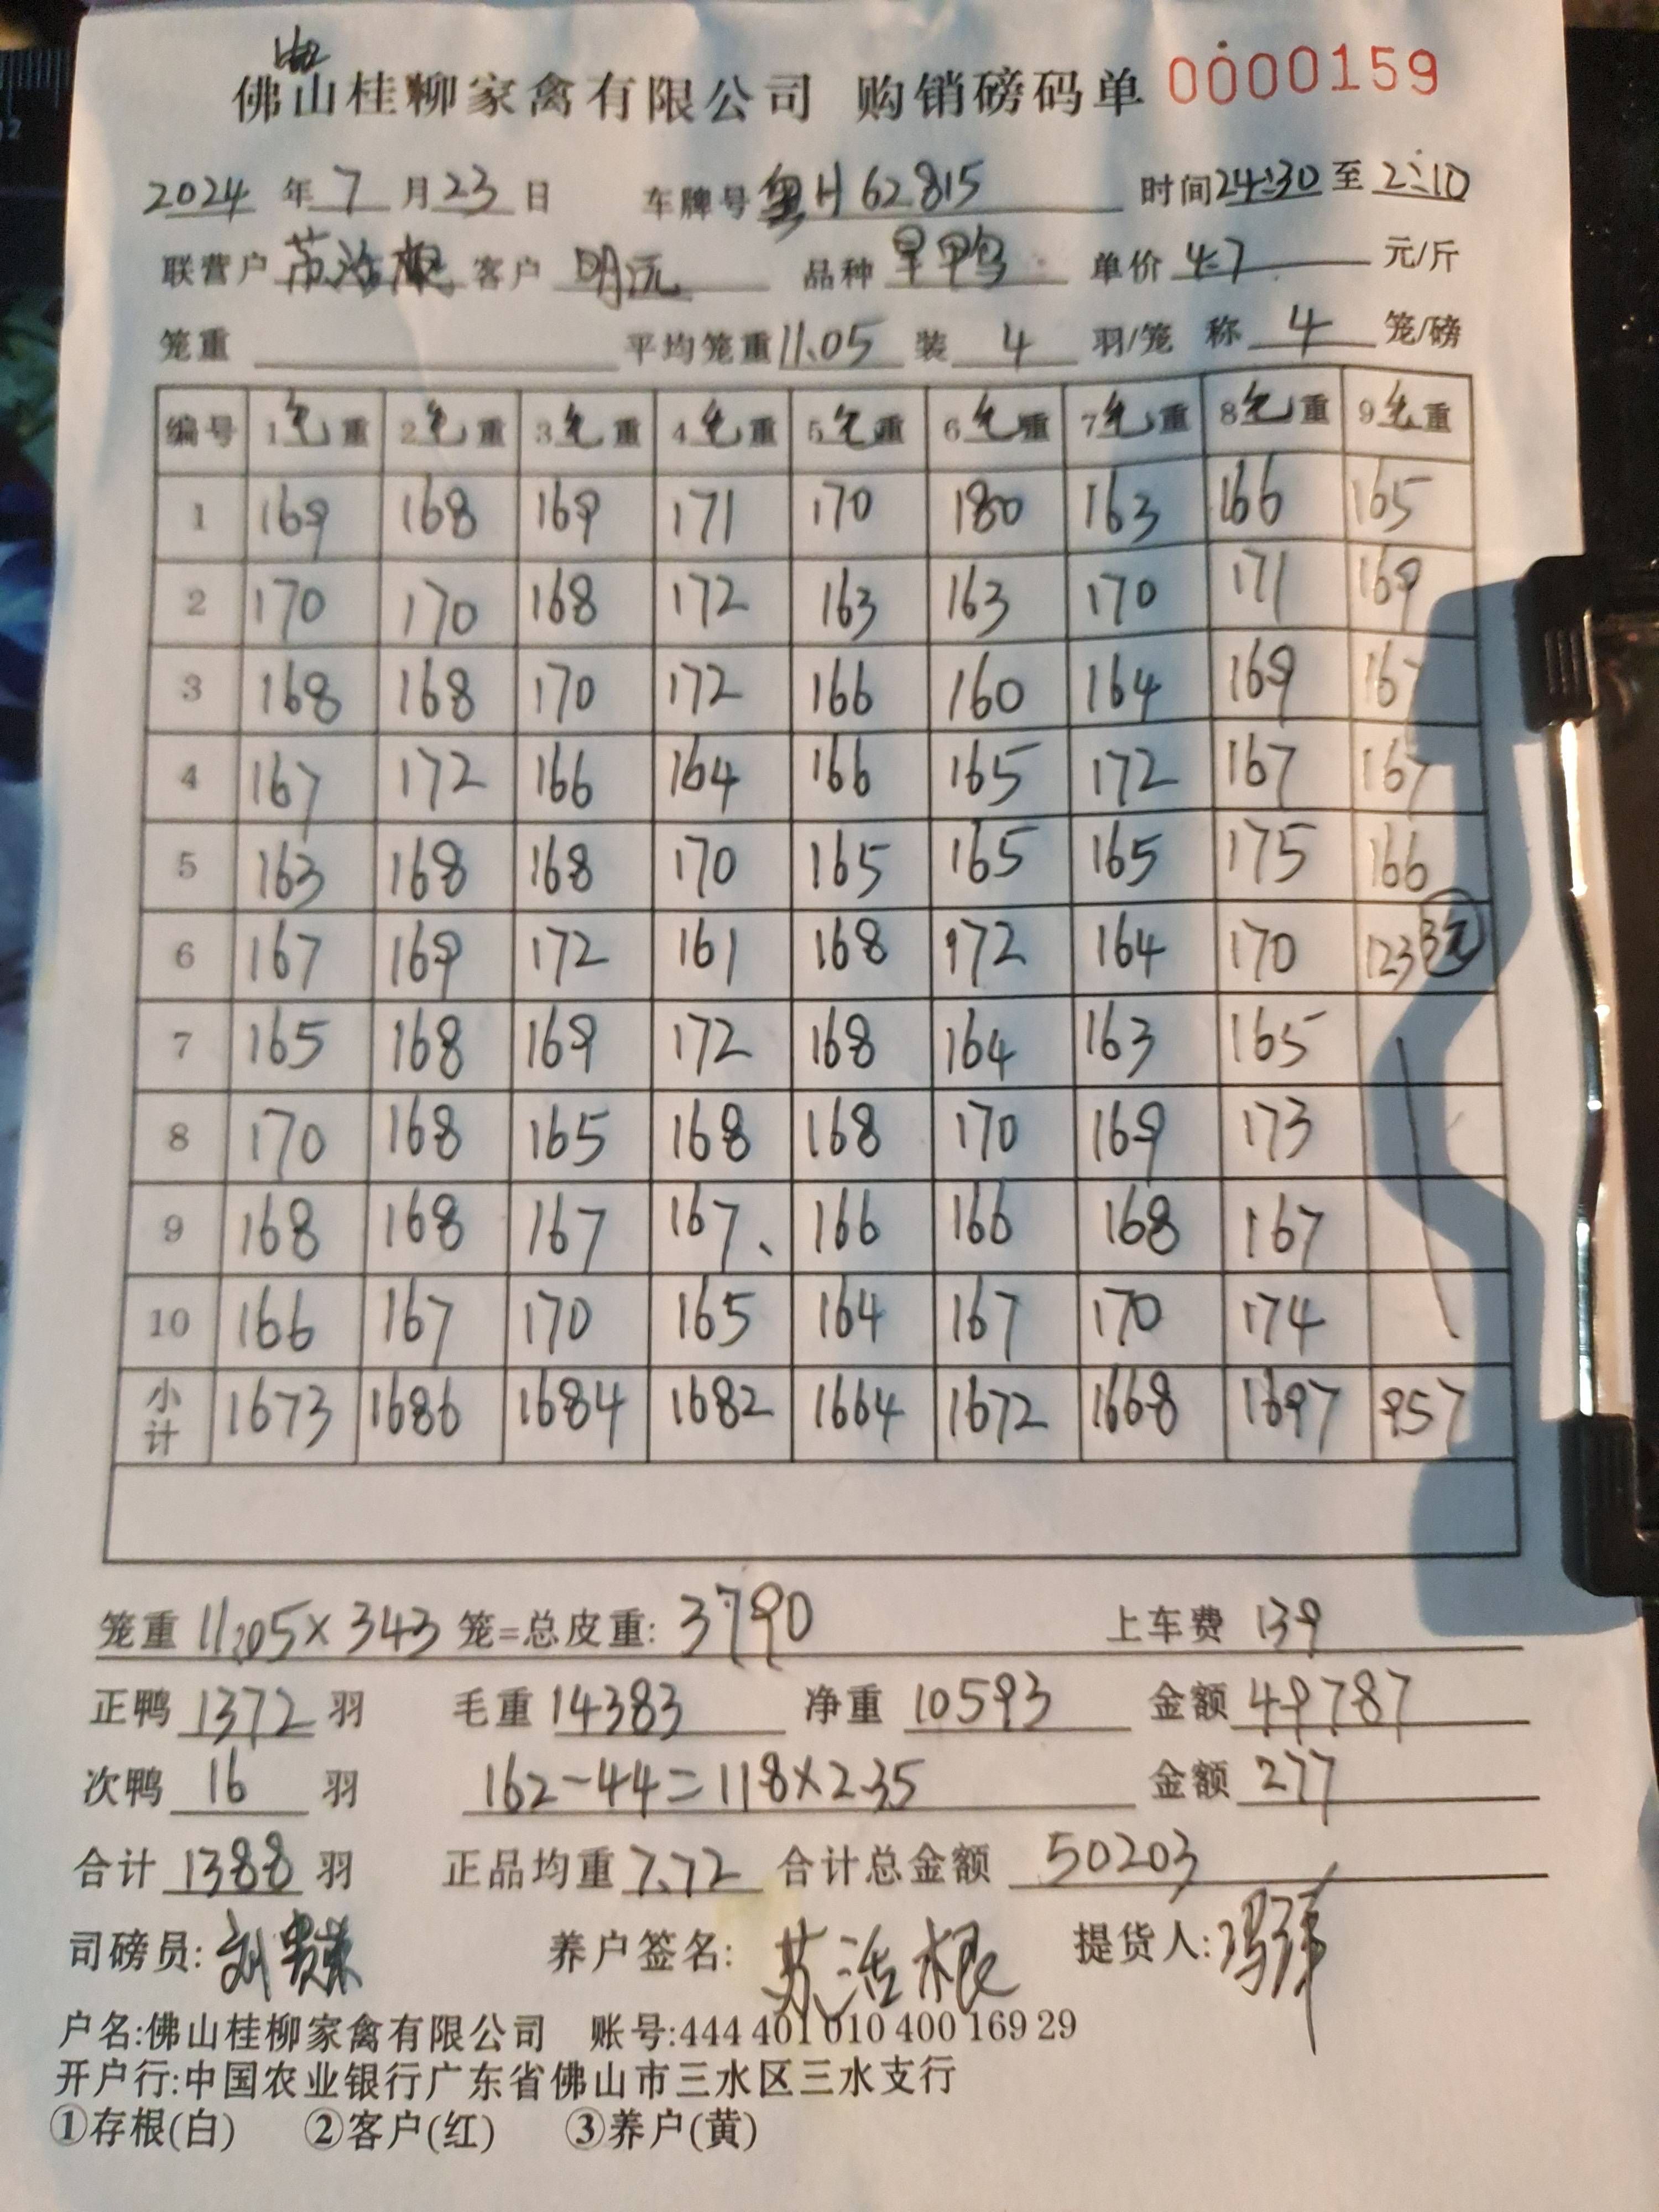 佛山桂柳家禽有限公司 购销磅码单 0000159
2024 年 7 月 23 日 车牌号 粤H62815 时间 24:30 至 2:10
联营户 苏活根 客户 明沅 品种 旱鸭 单价 4.7 元/斤
笼重 平均笼重 11.05 装 4 羽/笼 称 4 笼/磅
编号 1毛重 2毛重 3毛重 4毛重 5毛重 6毛重 7毛重 8毛重 9毛重
1 169 168 169 171 170 180 163 166 165
2 170 170 168 172 163 163 170 171 169
3 168 168 170 172 166 160 164 169 167
4 167 172 166 164 166 165 172 167 167
5 163 168 168 170 165 165 165 175 166
6 167 169 172 161 168 172 164 170 123
7 165 168 169 172 168 164 163 165
8 170 168 165 168 168 170 169 173
9 168 168 167 167、 166 166 168 167
10 166 167 170 165 164 167 170 174
小计 1673 1686 1684 1682 1664 1672 1668 1697 957
笼重 11.05×343 笼=总皮重: 3790 上车费 139
正鸭 1372 羽 毛重 14383 净重 10593 金额 49787
次鸭 16 羽 162-44=118×2.35 金额 277
合计 1388 羽 正品均重 7.72 合计总金额 50203
司磅员: 刘 养户签名: 苏活根 提货人: 冯
户名:佛山桂柳家禽有限公司 账号:444 401 010 400 169 29
开户行:中国农业银行广东省佛山市三水区三水支行
①存根(白) ②客户(红) ③养户(黄)